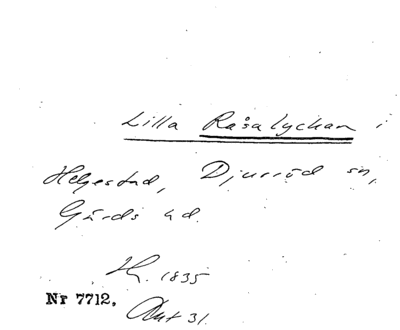 Lilla Råsalyckan i
Helgestad, Djurröd sn,
Gärds hd.
Hg. 1835
Nr 7712. Akt 31.